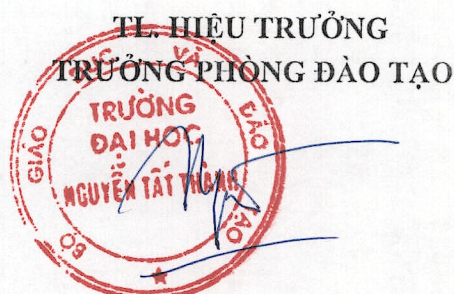 TL. HIỆU TRƯỞNG
TRƯỞNG PHÒNG ĐÀO TẠO
BỘ GIÁO DỤC VÀ ĐÀO TẠO
TRƯỜNG
ĐẠI HỌC
NGUYỄN TẤT THÀNH